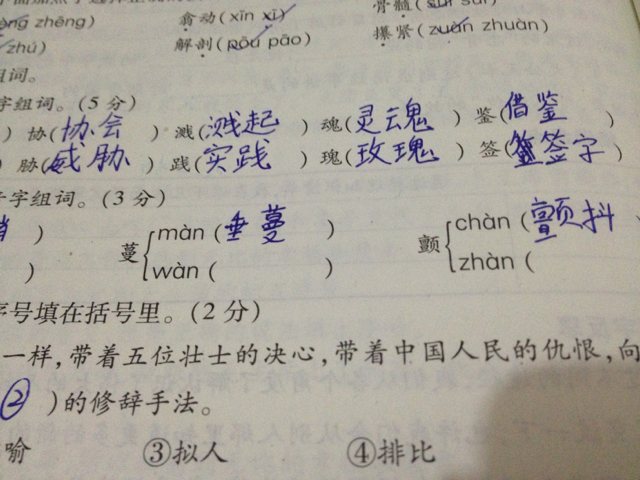 àng zhēng) 翕动(xīn xī) 骨髓(suǐ suí)
zhú) 解剖(pōu pāo) 攥紧(zuàn zhuàn)
组词。
字组词。(5分)
) 协(协会 ) 溅(溅起 ) 魂(灵魂 ) 鉴(借鉴 )
胁(威胁 ) 践(实践 ) 瑰(玫瑰 ) 签(签字 )
字组词。(3分)
) 蔓 màn (垂蔓 ) 颤 chàn (颤抖
) wàn ( ) zhàn (
序号填在括号里。(2分)
一样,带着五位壮士的决心,带着中国人民的仇恨,向
② )的修辞手法。
喻 ③拟人 ④排比